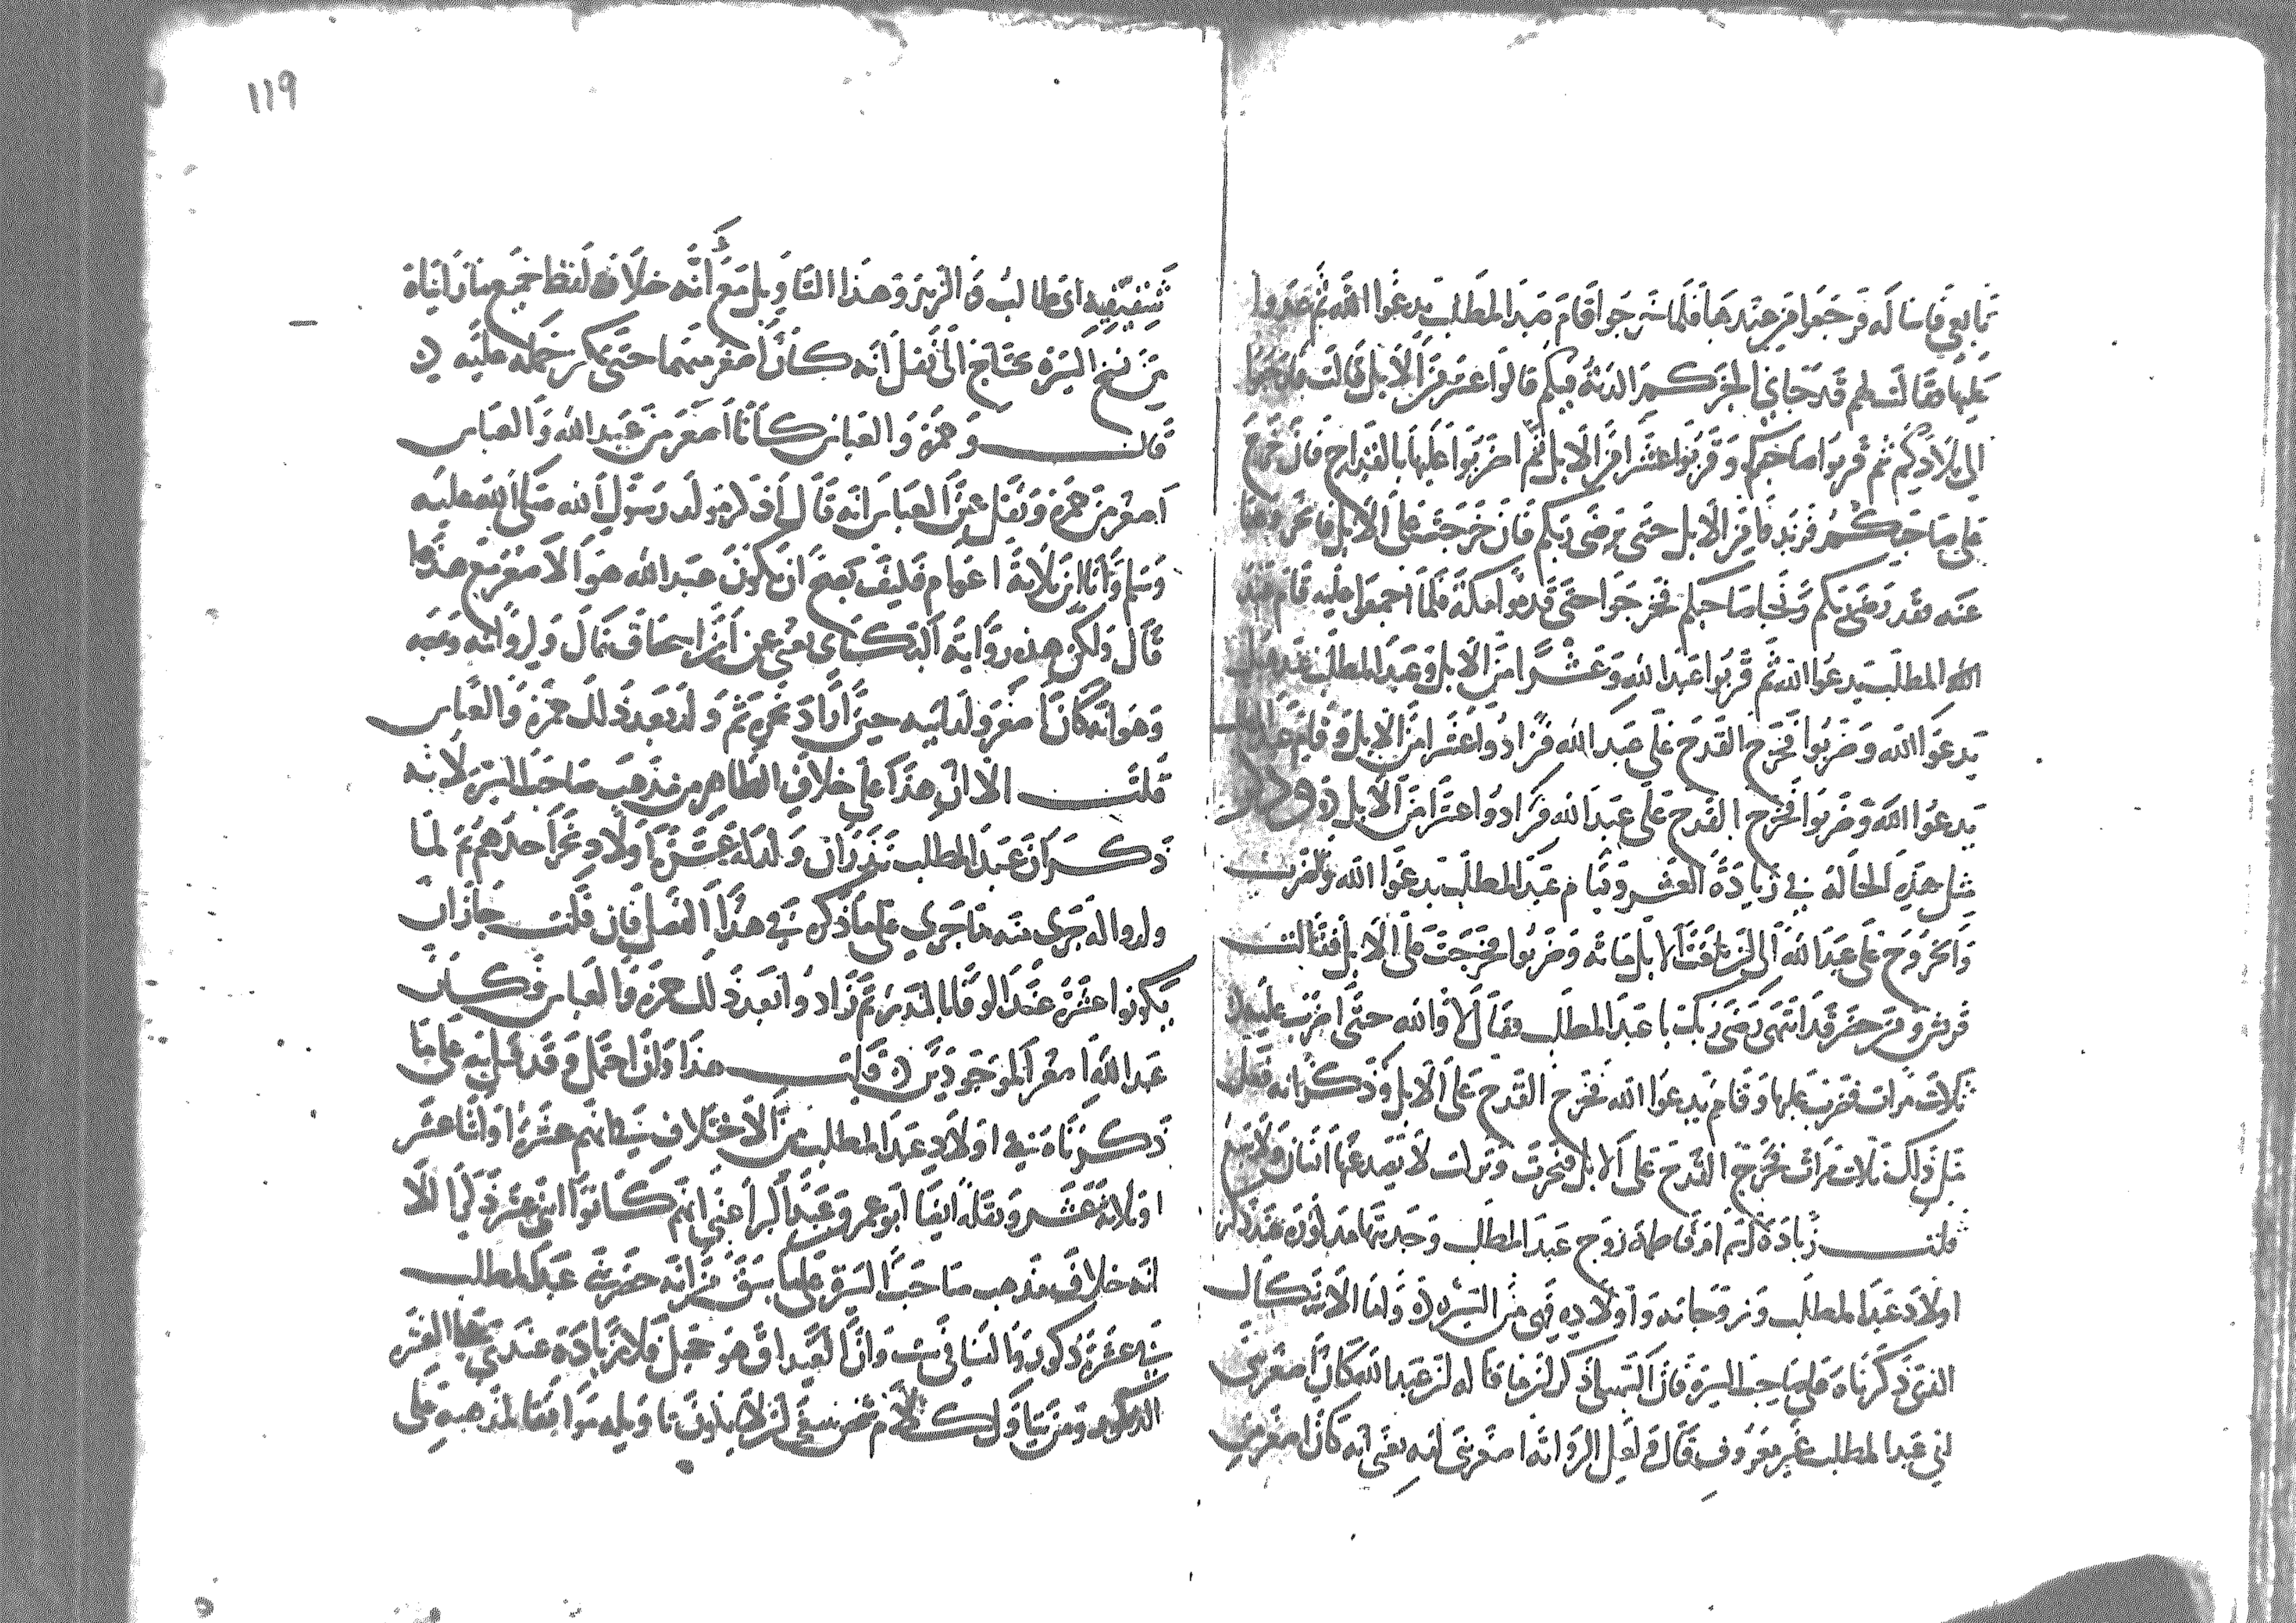 تابعي فاساله فرجعوا من عندها فلما خرجوا قام عبد المطلب يدعوا الله ثم غدوا
عليها فقالت لهم قد جاني الخبر كم الدية فيكم قالوا عشر من الابل قالت فارجعوا
الي بلادكم ثم قربوا صاحبكم وقربوا عشرا من الابل ثم اضربوا عليها بالقداح فان خرج
على صاحبكم فزيدوا من الابل حتى يرضى ربكم فان خرجت على الابل فانحروها
عنه فقد رضى ربكم ونجا صاحبكم فخرجوا حتى قدموا مكة فلما اجمعوا عليه قام عبد
المطلب يدعوا الله ثم قربوا عبد الله وعشرا من الابل وعبد المطلب عند هبل
يدعوا الله وضربوا فخرج القدح على عبد الله فزادوا عشرا من الابل وقام عبد المطلب
يدعوا الله وضربوا فخرج القدح على عبد الله فزادوا عشرا من الابل وذكر
مثل هذه الحالة في زيادة العشر وقيام عبد المطلب يدعوا الله والضرب
والخروج على عبد الله الى ان بلغت الابل مائه وضربوا فخرجت على الابل فقالت
قريش ومن حضر قد انتهى رضى ربك يا عبد المطلب فقال لا والله حتى اضرب عليها
ثلاث مرات فضرب عليها وقام يدعوا الله فخرج القدح على الابل وذكر انه فعل
مثل ذلك ثلاث مرات فخرج القدح على الابل فنحرت وتركت لا يصد عنها انسان ولا يمنع
قلت زيادة اسم ام فاطمة زوج عبد المطلب وجدتها عند ذكر
اولاد عبد المطلب وزوجاته واولاده فهي من السيره واما الاشكال
الذي ذكرناه على صاحب السيرة فان السهيلي ذكر ان ما قاله ان عبد الله كان اصغر بني
ابي عبد المطلب غير معروف قال ولعل الرواية اصغر بني امه يعني انه كان اصغر من
شقيقيه ابي طالب والزبير وهذا التاويل مع انه خلاف لفظ جميع ما رايناه
من نسخ السيره يحتاج الى نقل انه كان اصغر منهما حتى يمكن حمله عليه
قالت وحمزة والعباس كانا اصغر من عبد الله والعباس
اصغر من حمزة ونقل عن العباس انه قال اذكر مولد رسول الله صلى الله عليه
وسلم وانا ابن ثلاثة اعوام فكيف يصح ان يكون عبد الله هو الاصغر مع هذا
قال ولكن هذه رواية البكاى يعني عن ابن اسحاق قال ولروايته وجه
وهو انه كان اصغر ولد ابيه حين اراد نحره ثم ولد بعد ذلك حمزة والعباس
قلت الا ان هذا على خلاف الظاهر من مذهب صاحب السيرة لانه
ذكر ان عبد المطلب نذر ان ولد له عشرة اولاد نحر احدهم ثم لما
ولدوا له جرى منه ما جرى على ما ذكره في هذا الفصل فان قلت جاز ان
يكونوا عشرة عند الوفا بالنذر ثم زادوا بعد ذلك حمزة والعباس فكان
عبد الله اصغر الموجودين قلت هذا وان احتمل وقد يبنى على ما
ذكرناه في اولاد عبد المطلب من الاختلاف في انهم عشرة او اثنا عشر
او ثلاثة عشر ونقله ايضا ابو عمر وعبد البر اعني انهم كانوا اثنى عشر ذكرا الا
انه خلاف مذهب صاحب السيرة على ما سبق من انه حصر بني عبد المطلب
في عشرة ذكور والنسا في ست وان الغيداق هو حجل فلا زيادة عنده على العشرة
الذكور ومن يتاول كلام شخص ينبغي ان يكون تاويله موافقا لمذهبه على
١١٩